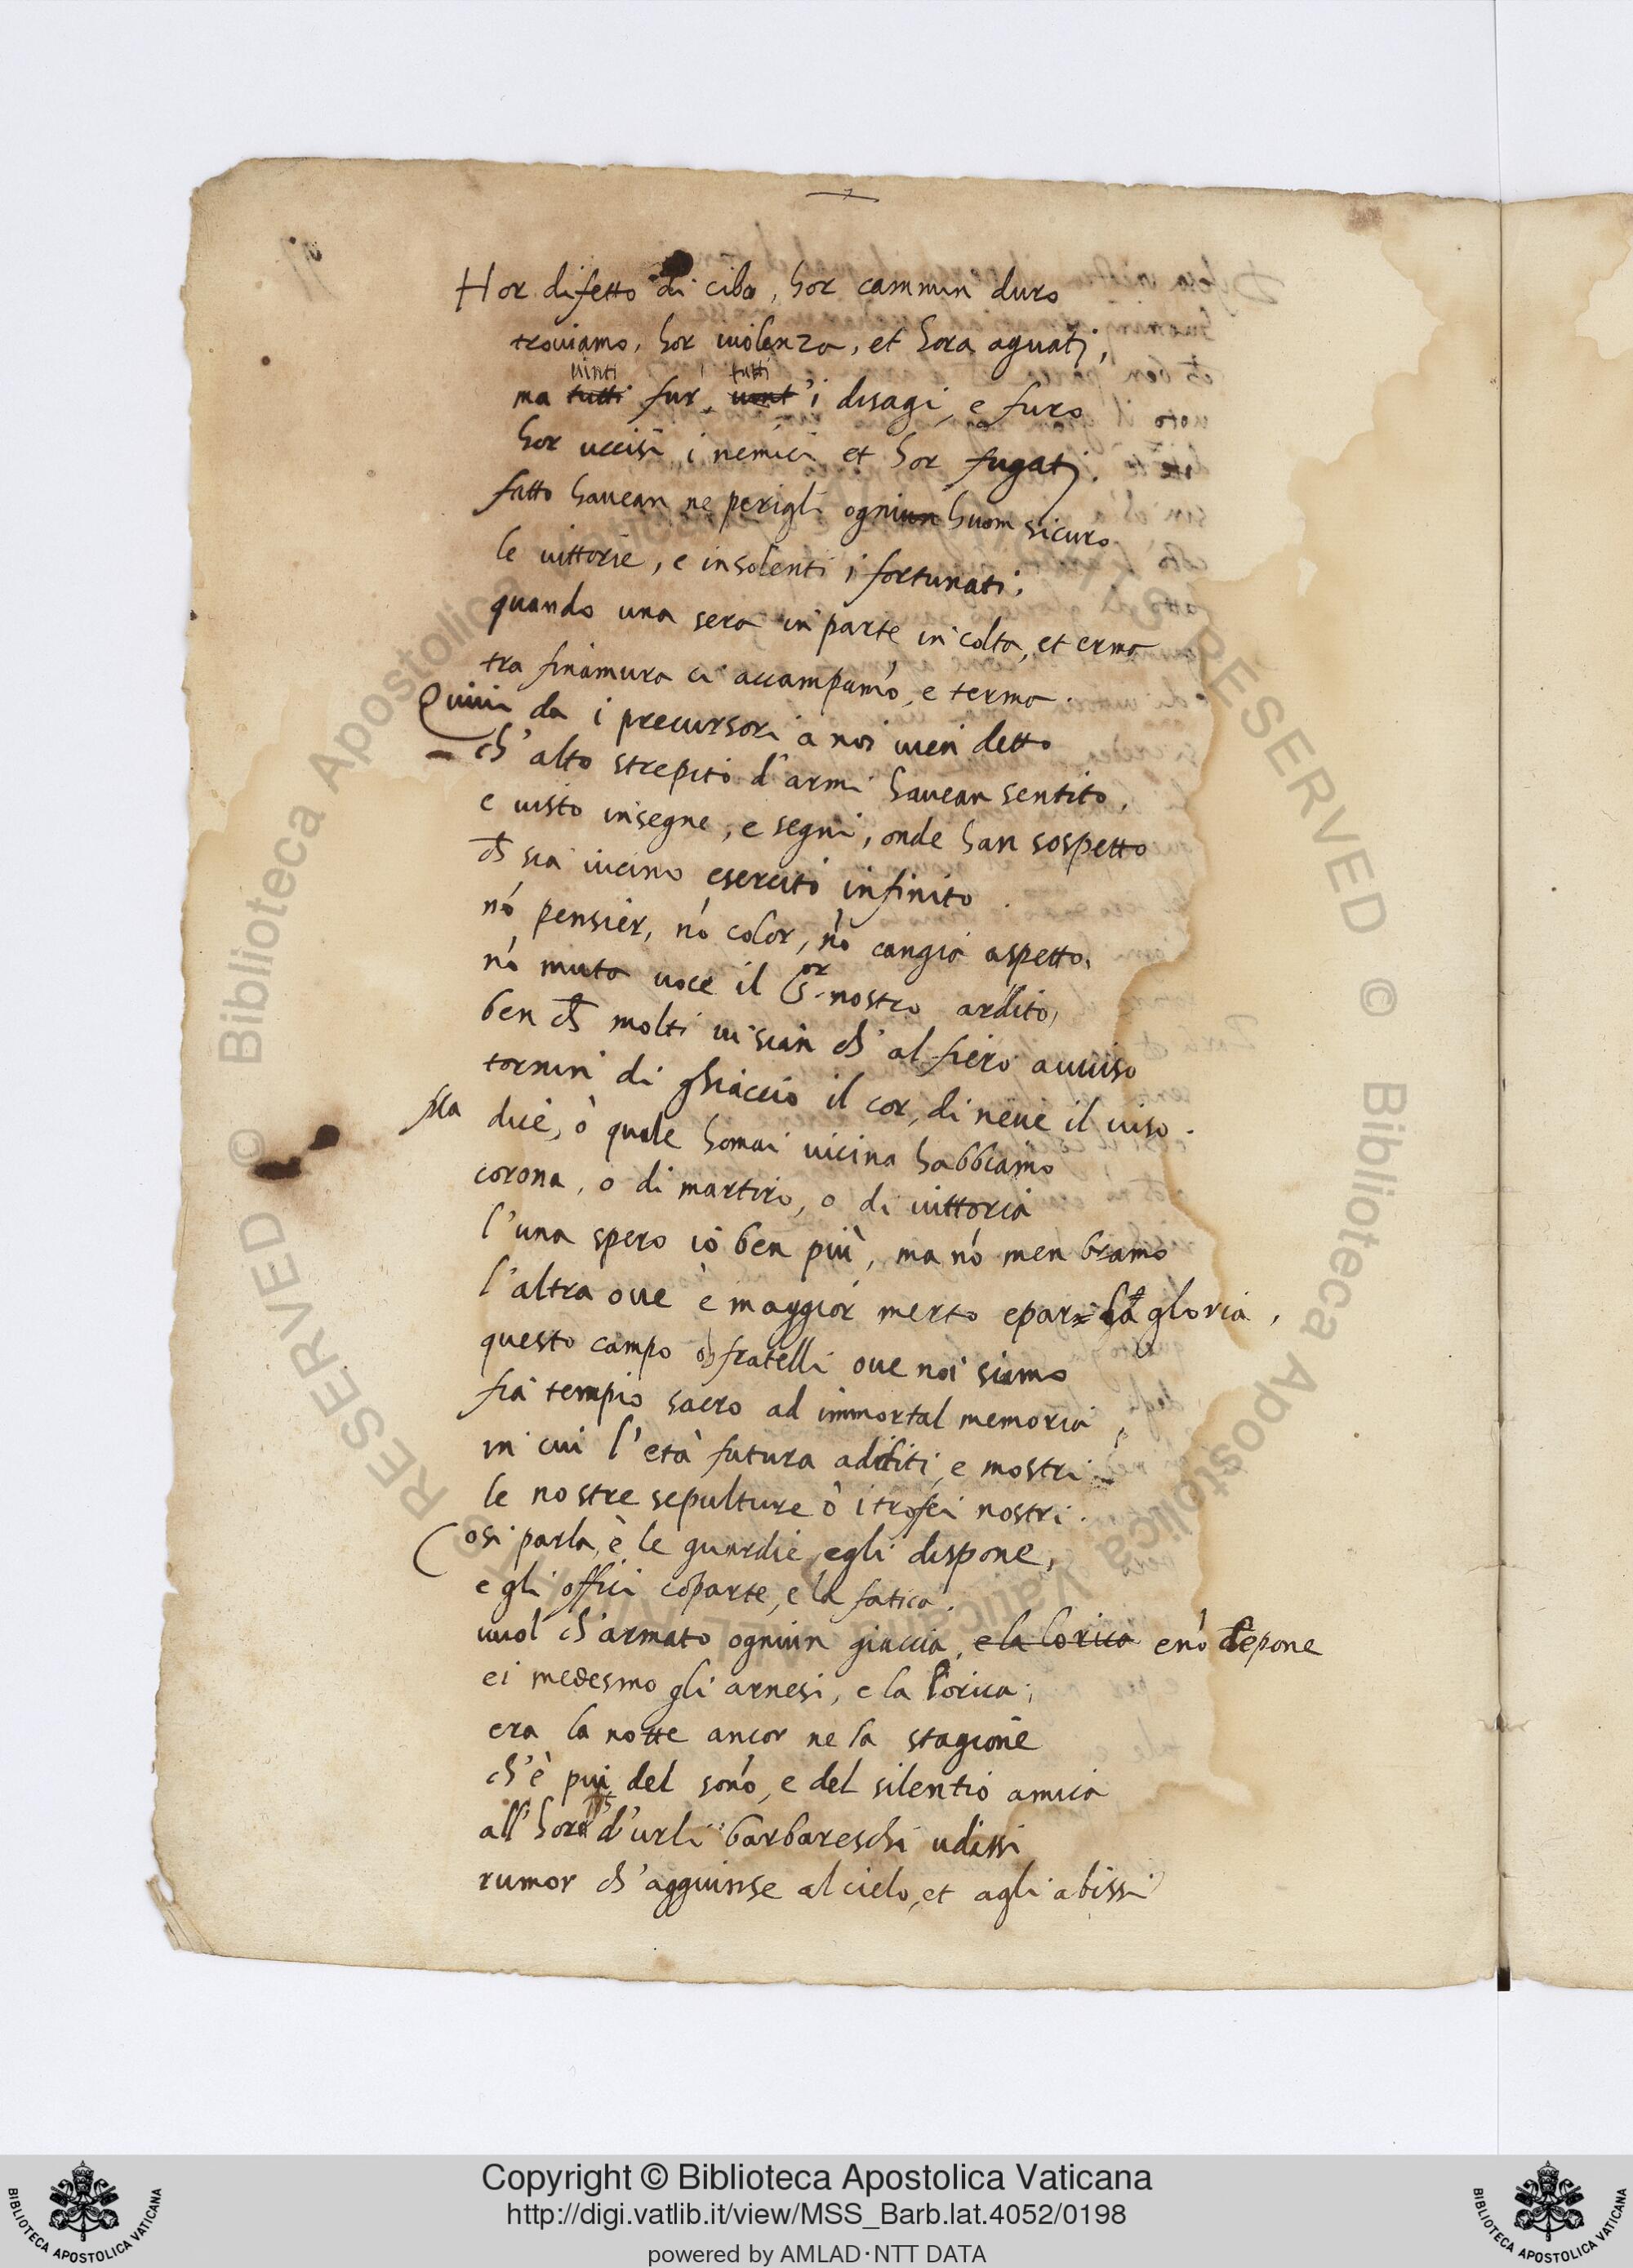 Hor difetto di cibo, hor cammin duro
trouiamo, hor uiolenza, et hora aguati,
uinti tutti
ma tutti fur, uint' i disagi, e furo
hor uccisi i nemici et hor fugati.
fatto hauean ne perigli ogniun huom sicuro
le uittorie, e insolenti i fortunati:
quando una sera in parte incolta, et erma
tra finamura ci accampamo, e terma.
Quiui da i precursori a noi uien detto
ch' alto strepito d'armi hauean sentito,
e uisto insegne, e segni, onde han sospetto
ch sia uicino esercito infinito.
nō pensier, nō color, nō cangia aspetto,
nō muta uoce il Sor nostro ardito,
ben ch molti ui sian ch' al fiero auuiso
tornin di ghiaccio il cor, di neue il uiso.
Ma dice, ò quale homai uicina habbiamo
corona, o di martiro, o di uittoria
l'una spero io ben più, ma nō men bramo
l'altra oue è maggior merto e par la gloria,
questo campo o fratelli oue noi siamo
fia tempio sacro ad immortal memoria,
in cui l'età futura additi, e mostri
le nostre sepulture ò i trofei nostri.
Cosi parla, e le guardie egli dispone,
e gli offici cōparte, e la fatica.
uuol ch'armato ogniun giaccia, e la lorica e nō depone
ei medesmo gli arnesi, e la lorica;
era la notte ancor ne la stagione
ch'è piu del sonō, e del silentio amica
all'hora d'urli barbareschi udissi
rumor ch'aggiunse al cielo, et agli abissi
Copyright © Biblioteca Apostolica Vaticana
http://digi.vatlib.it/view/MSS_Barb.lat.4052/0198
powered by AMLAD·NTT DATA
BIBLIOTECA APOSTOLICA VATICANA
BIBLIOTECA APOSTOLICA VATICANA